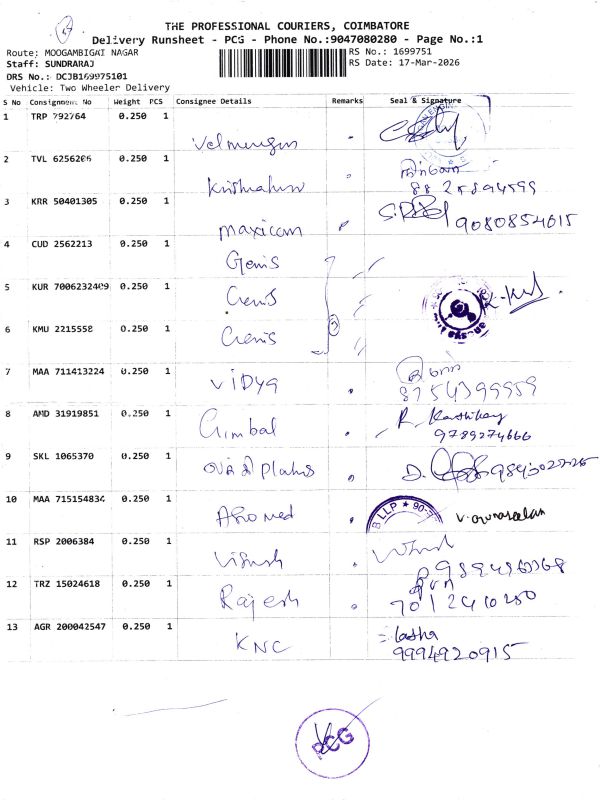 THE PROFESSIONAL COURIERS, COIMBATORE
Delivery Runsheet - PCG - Phone No.:9047080280 - Page No.:1
Route: MOOGAMBIGAI NAGAR
RS No.: 1699751
Staff: SUNDRARAJ
RS Date: 17-Mar-2026
DRS No.: DCJB169975101
Vehicle: Two Wheeler Delivery
S No Consignment No Weight PCS Consignee Details Remarks Seal & Signature
1 TRP 792764 0.250 1
Velmurugan
2 TVL 6256206 0.250 1
3 KRR 50401305 0.250 1
maxicom 9080854615
4 CUD 2562213 0.250 1 Genis
5 KUR 7006232409 0.250 1 Genis
6 KMU 2215558 0.250 1 Genis
3
7 MAA 711413224 0.250 1
ViDYA 8754399959
8 AMD 31919851 0.250 1
Gimbal R. Karthikay
9789274666
9 SKL 1065370 0.250 1
10 MAA 715154834 0.250 1
B LLP
11 RSP 2006384 0.250 1
12 TRZ 15024618 0.250 1
Rajesh
13 AGR 200042547 0.250 1 latha
KNC 9994920915
PCG